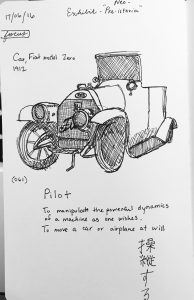 17/06/16
Neo-
Exhibit- "Pre-istoria"
Car, Fiat model Zero
1912
Pilot
To manipulate the powerful dynamics
of a machine as one wishes.
To move a car or airplane at will
操縦する